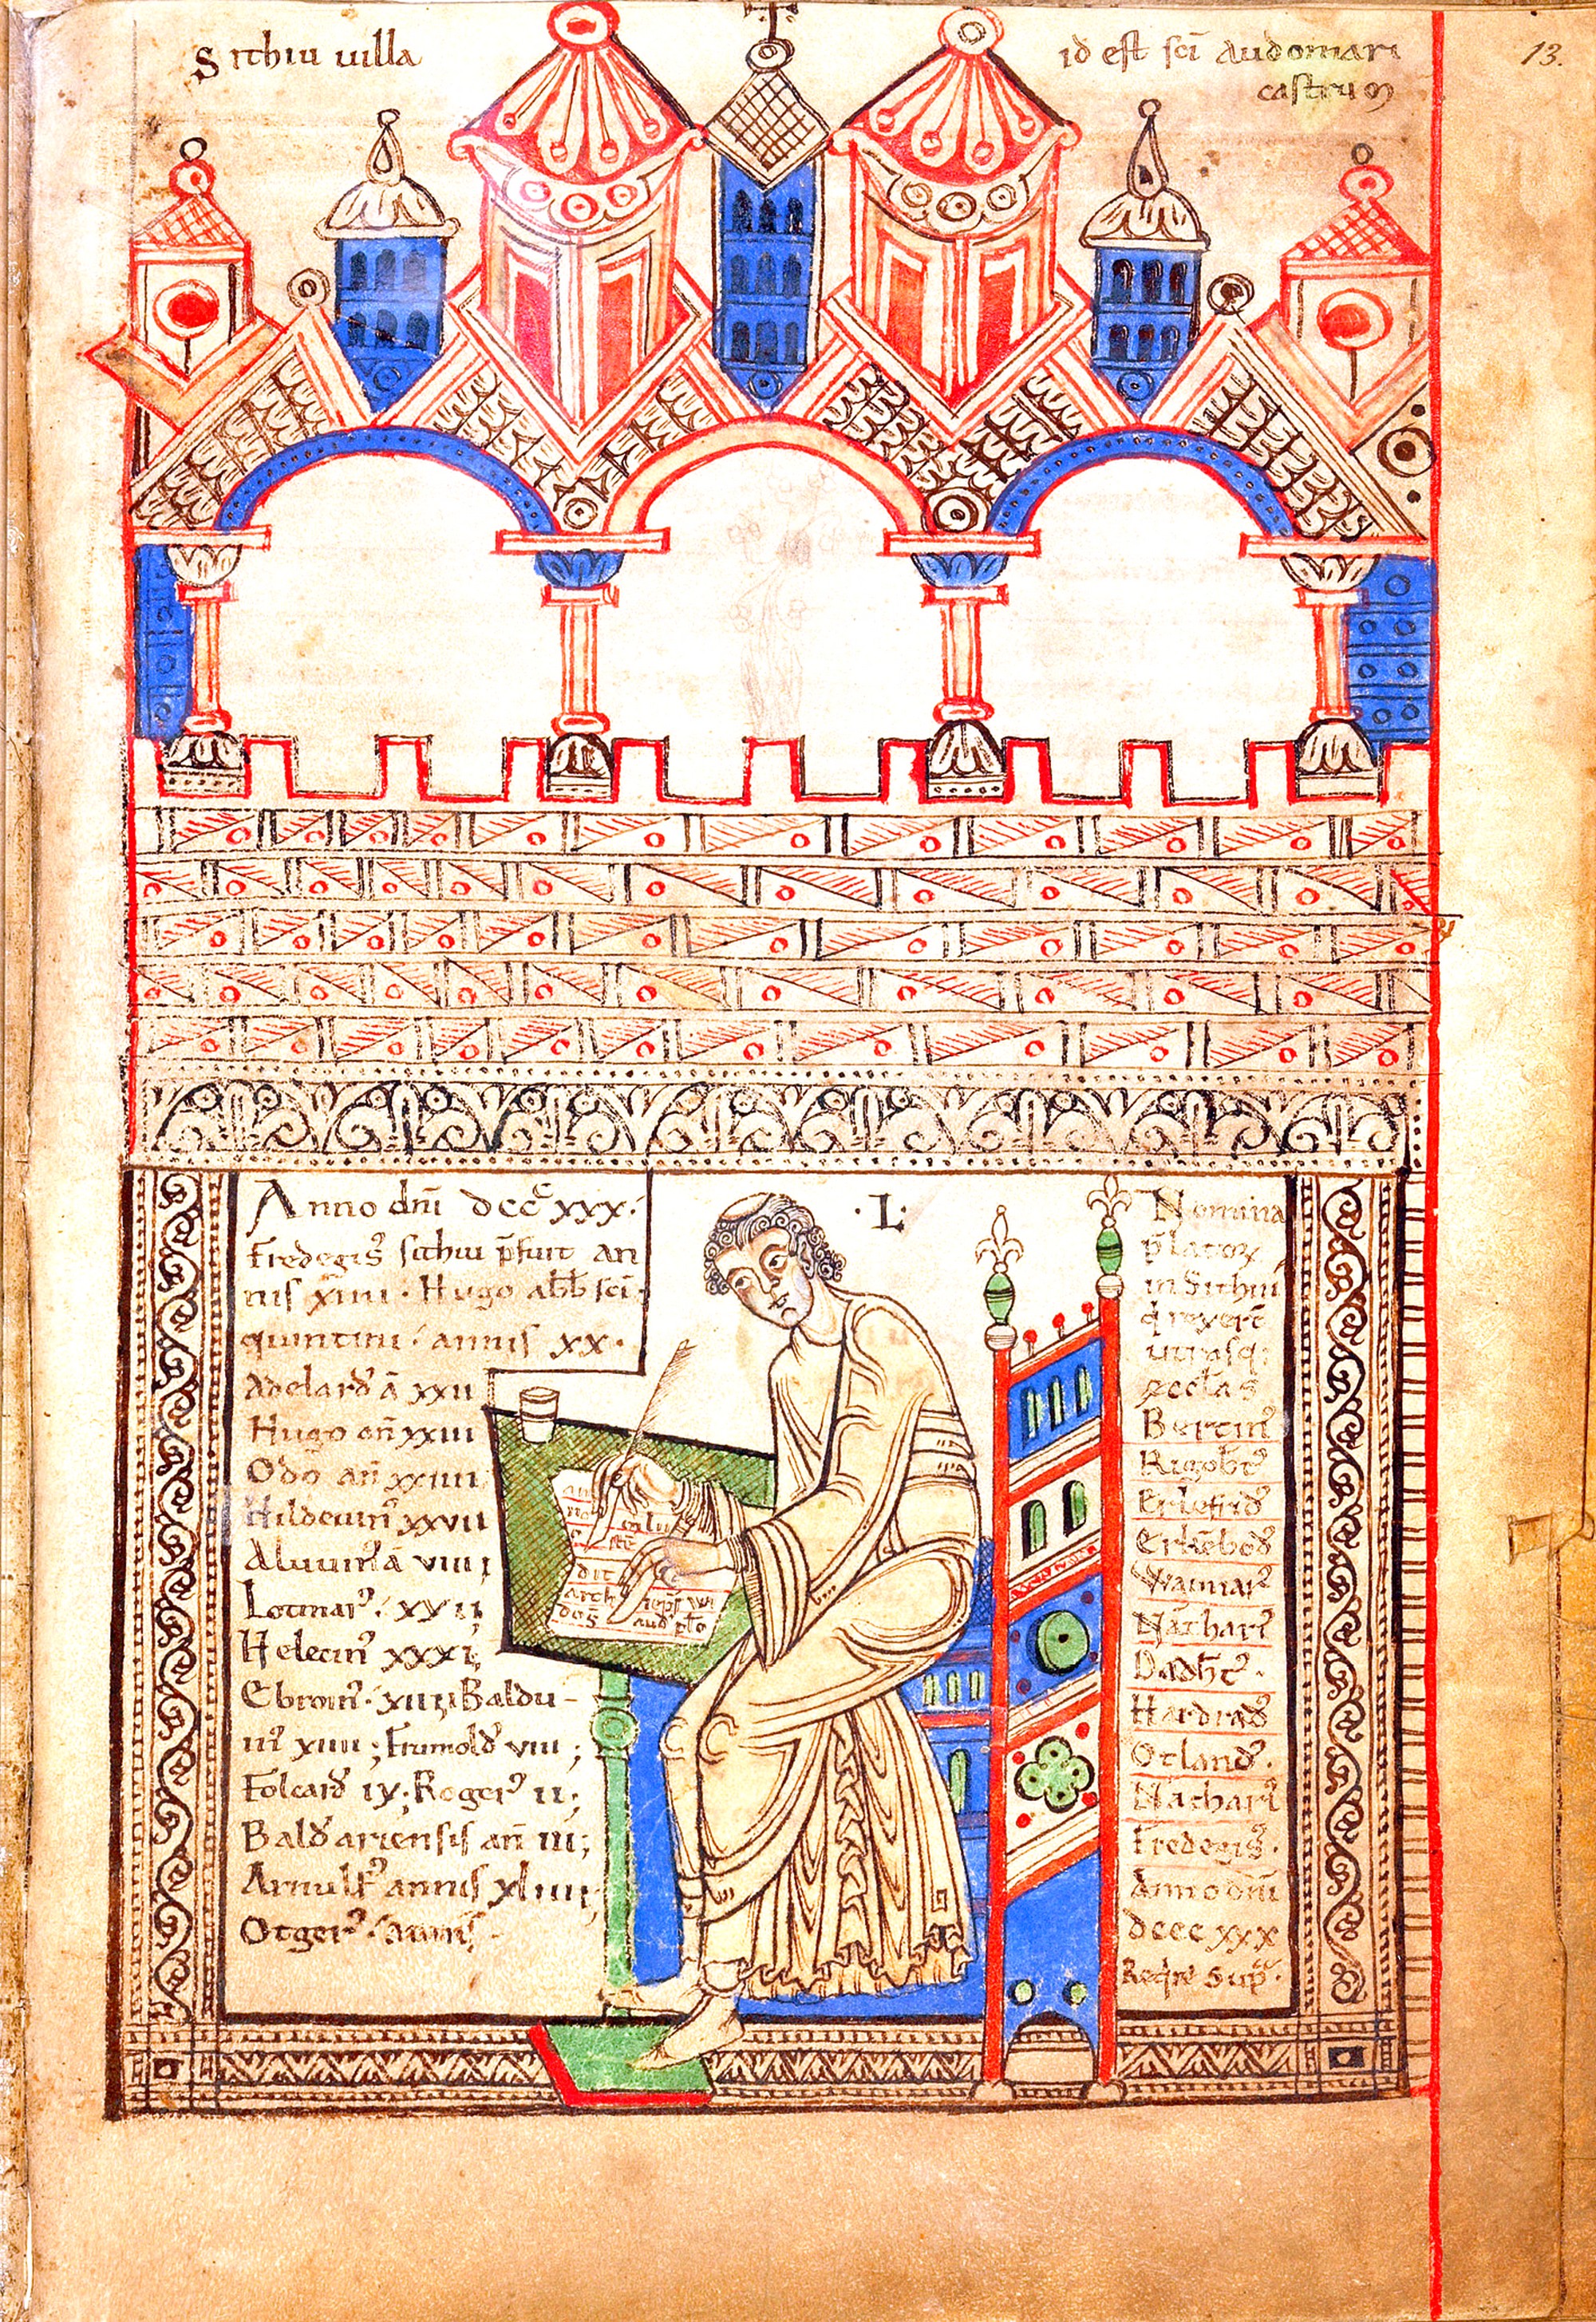 Sithiu uilla
id est sc̄i Audomari
castrum
13.
Anno dn̄i dccc xxx.
Fredegis᷒ sithiu p̄fuit an
nis xiiii. Hugo abb̄ sc̄i
quintini. annis xx.
Adelard᷒ ā xxii
Hugo an̄ xxiii
Odo an̄ xxiiii
Hildeuin᷒ xxvii
Aluuin᷒ ā viiii
Lotmar᷒. xx ii
Helecin᷒ xxxi
Ebroin᷒. xiiii Baldu-
in᷒ xiiii; Frumold᷒ viii;
Folcard᷒ ix; Roger᷒ ii;
Bald᷒ ariensis an̄ iii;
Arnulf᷒ annis xliiii
Otger᷒. annis
.L.
Nomina
p̄latoꝝ
in Sithiu
q̇ rexer̄
utrasq;
eccl̄as
Bertin᷒
Rigob̄t᷒
Erlefrid᷒
Erkēbod᷒
Waimar᷒
Nāthari᷒
Dadb̄t᷒.
Hardrad᷒
Otland᷒.
Nāthari᷒
Fredegis᷒.
Anno dn̄i
dccc xxx
Reqͥre sup̄.